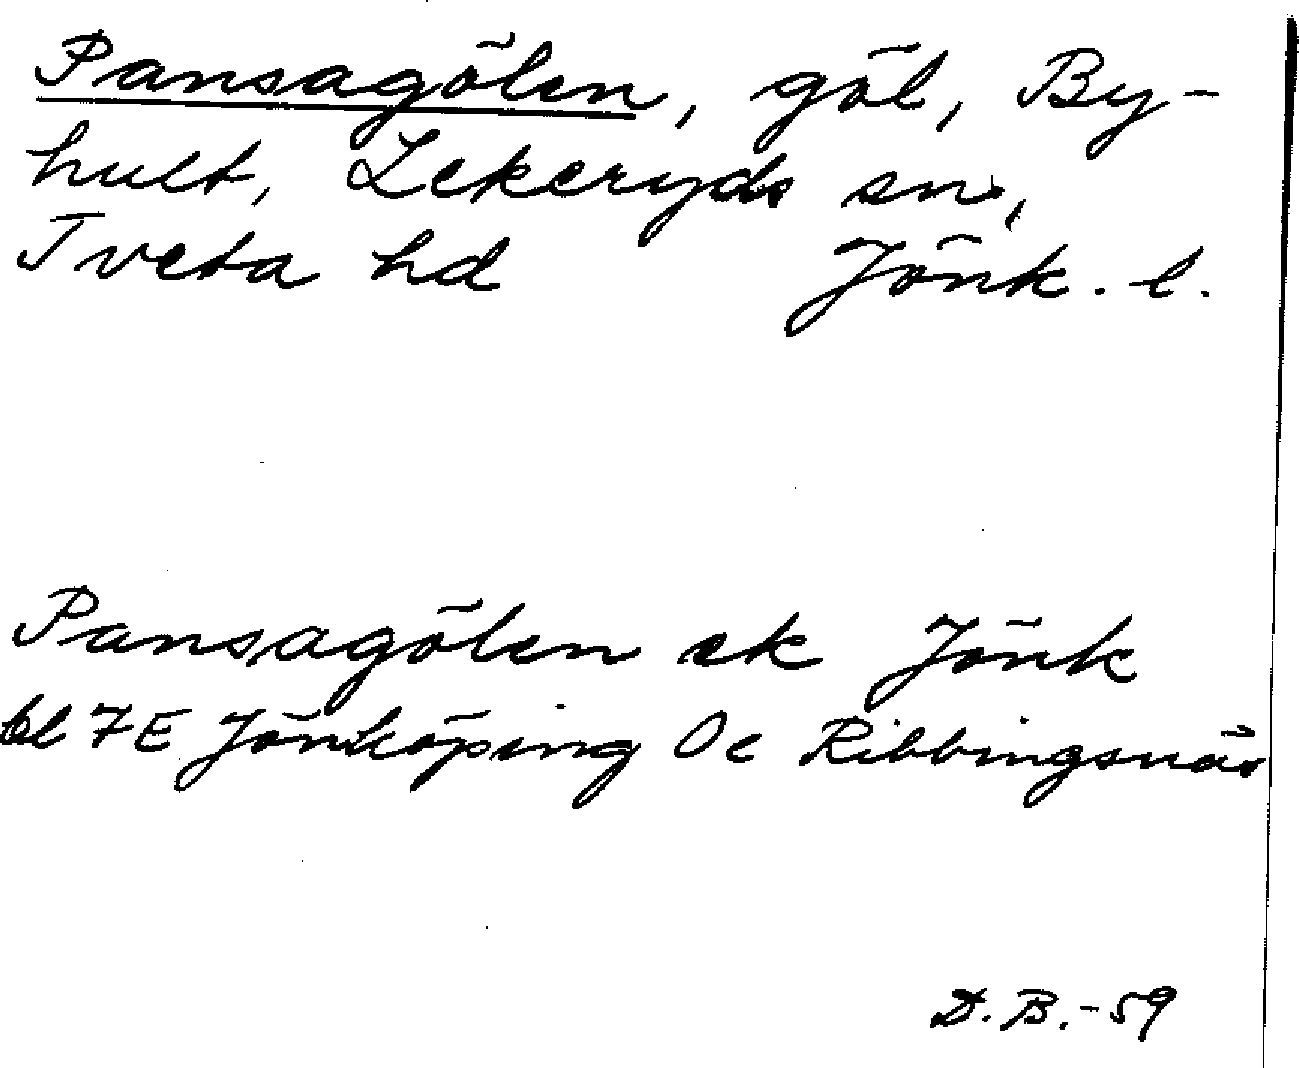 Pansagölen, göl, By-
hult, Lekeryds sn,
Tveta hd Jönk. l.
Pansagölen ek Jönk
bl 7E Jönköping Oe Ribbingsnäs
D. B. -59